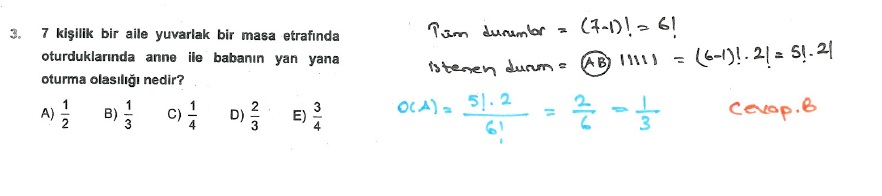 3. 7 kişilik bir aile yuvarlak bir masa etrafında
oturduklarında anne ile babanın yan yana
oturma olasılığı nedir?
A) 1/2 B) 1/3 C) 1/4 D) 2/3 E) 3/4
Tüm durumlar = (7-1)! = 6!
İstenen durum = (AB) ||||| = (6-1)!.2! = 5!.2!
O(A) = 5!.2 / 6! = 2/6 = 1/3
Cevap.B